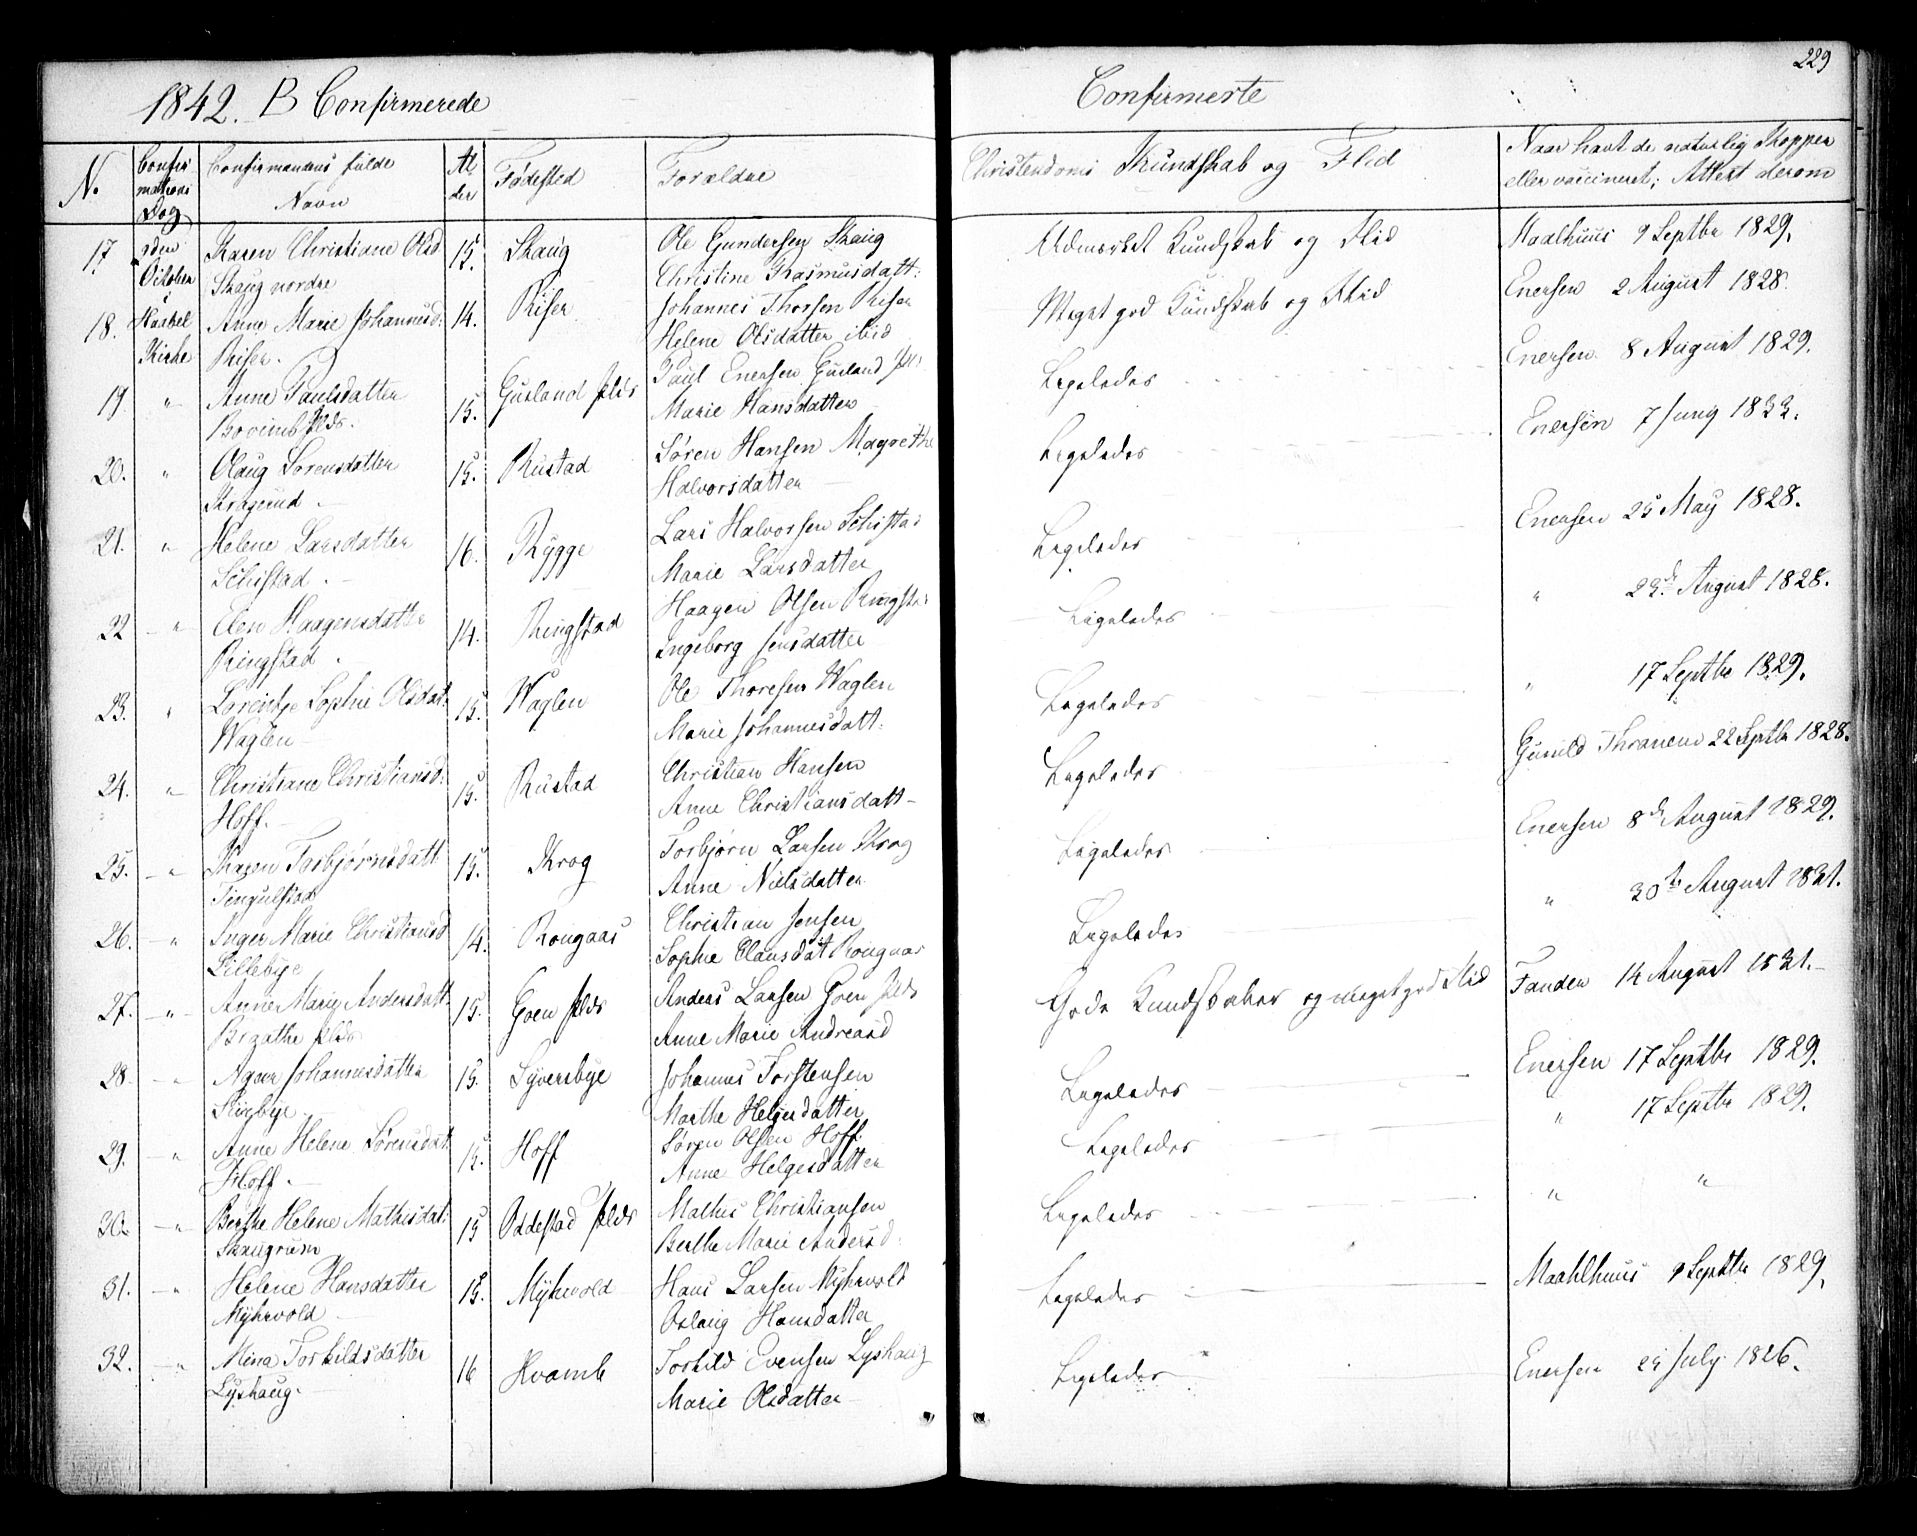 229
1842. B Confirmerede
Confirmerte
N.
Confir
mations
Dag
Confirmandens fulde
Navn
Al
der
Fødested
Forældre
Christendoms Kundskab og Flid
Naar havt de naturlig Kopper
eller vaccineret; Attest derom
17.
October
Karen Christiane Olsd
Skaug nordre
15.
Skaug
Ole Gundersen Skaug
Christine Rasmusdatt:
Udmærket Kundskab og Flid
Maalhuus 9 Septbr 1829.
18.
Kirke
Anne Marie Johannesd:
Riser.
14.
Riser
Johannes Thorsen Riser
Helene Olsdatter ibid
Meget god Kundskab og Flid
Enersen 2 August 1828.
19.
"
Anne Paulsdatter
15.
Gusland
Paul Enersen Gusland
Marie Hansdatter
Ligeledes
Enersen 8 August 1829.
20.
"
Olaug Sørensdatter
Kragerud
15.
Rustad
Søren Hansen Magrethe
Halvorsdatter
Ligeledes
Enersen 7 Juny 1833.
21.
"
Helene Larsdatter
Schistad.
16.
Rygge
Lars Halvorsen Schistad
Marie Larsdatter
Ligeledes
Enersen 25 May 1828.
22
"
Elen Haagensdatter
Ringstad.
14.
Ringstad
Haagen Olsen Ringstad
Ingeborg Jensdatter
Ligeledes
" 23de August 1828.
23.
"
Lorentze Sophie Olsdat
Waglen
15.
Waglen
Ole Thoresen Waglen
Marie Johannesdatt:
Ligeledes
" 17 Septbr 1829.
24.
"
Christiane Christiansd.
Hoff.
15.
Rustad
Christian Hansen
Anne Christiansdatt
Ligeledes
Gunild 22 Septbr 1828.
25.
"
Karen Torbjørnsdatt
Tingulstad
15.
Krog
Torbjørn Larsen Krog
Anne Nielsdatter
Ligeledes
Enersen 8de August 1829.
26.
"
Inger Marie Christiansd
Lillebye
14.
Rongaas
Christian Jensen
Sophie Clausdat Rongaas
Ligeledes
" 30te August 1831.
27.
"
Anne Marie Andersdatt.
15.
Goen
Andeas Larsen Goen
Anne Marie Andreasd
Gode Kundskaber og meget god Flid
Fanden 14 August 1831.
28.
"
Johannesdatter
15.
Syversbye
Johannes Torstensen
Marthe Helgesdatter
Ligeledes
Enersen 17 Septbr 1829.
29.
"
Anne Helene Sørensdat.
Hoff.
15.
Hoff
Søren Olsen Hoff.
Anne Helgesdatter
Ligeledes
" 17 Septbr 1829.
30.
"
Berthe Helene Mathisdat.
Skaugrum
15
Oddestad
Mathis Christiansen
Berthe Marie Andersd.
Ligeledes
" "
31.
"
Helene Hansdatter
Myhrvold
15.
Myhrvold
Hans Larsen Myhrvold
Oslaug Hansdatter
Ligeledes
Maahlhuus 9 Septbr 1829.
32.
"
Mina Torkildsdatter
Lyshaug.
16
Hvamb
Torkild Evensen Lyshaug
Marie Olsdatter
Ligeledes
Enersen 25 July 1826.